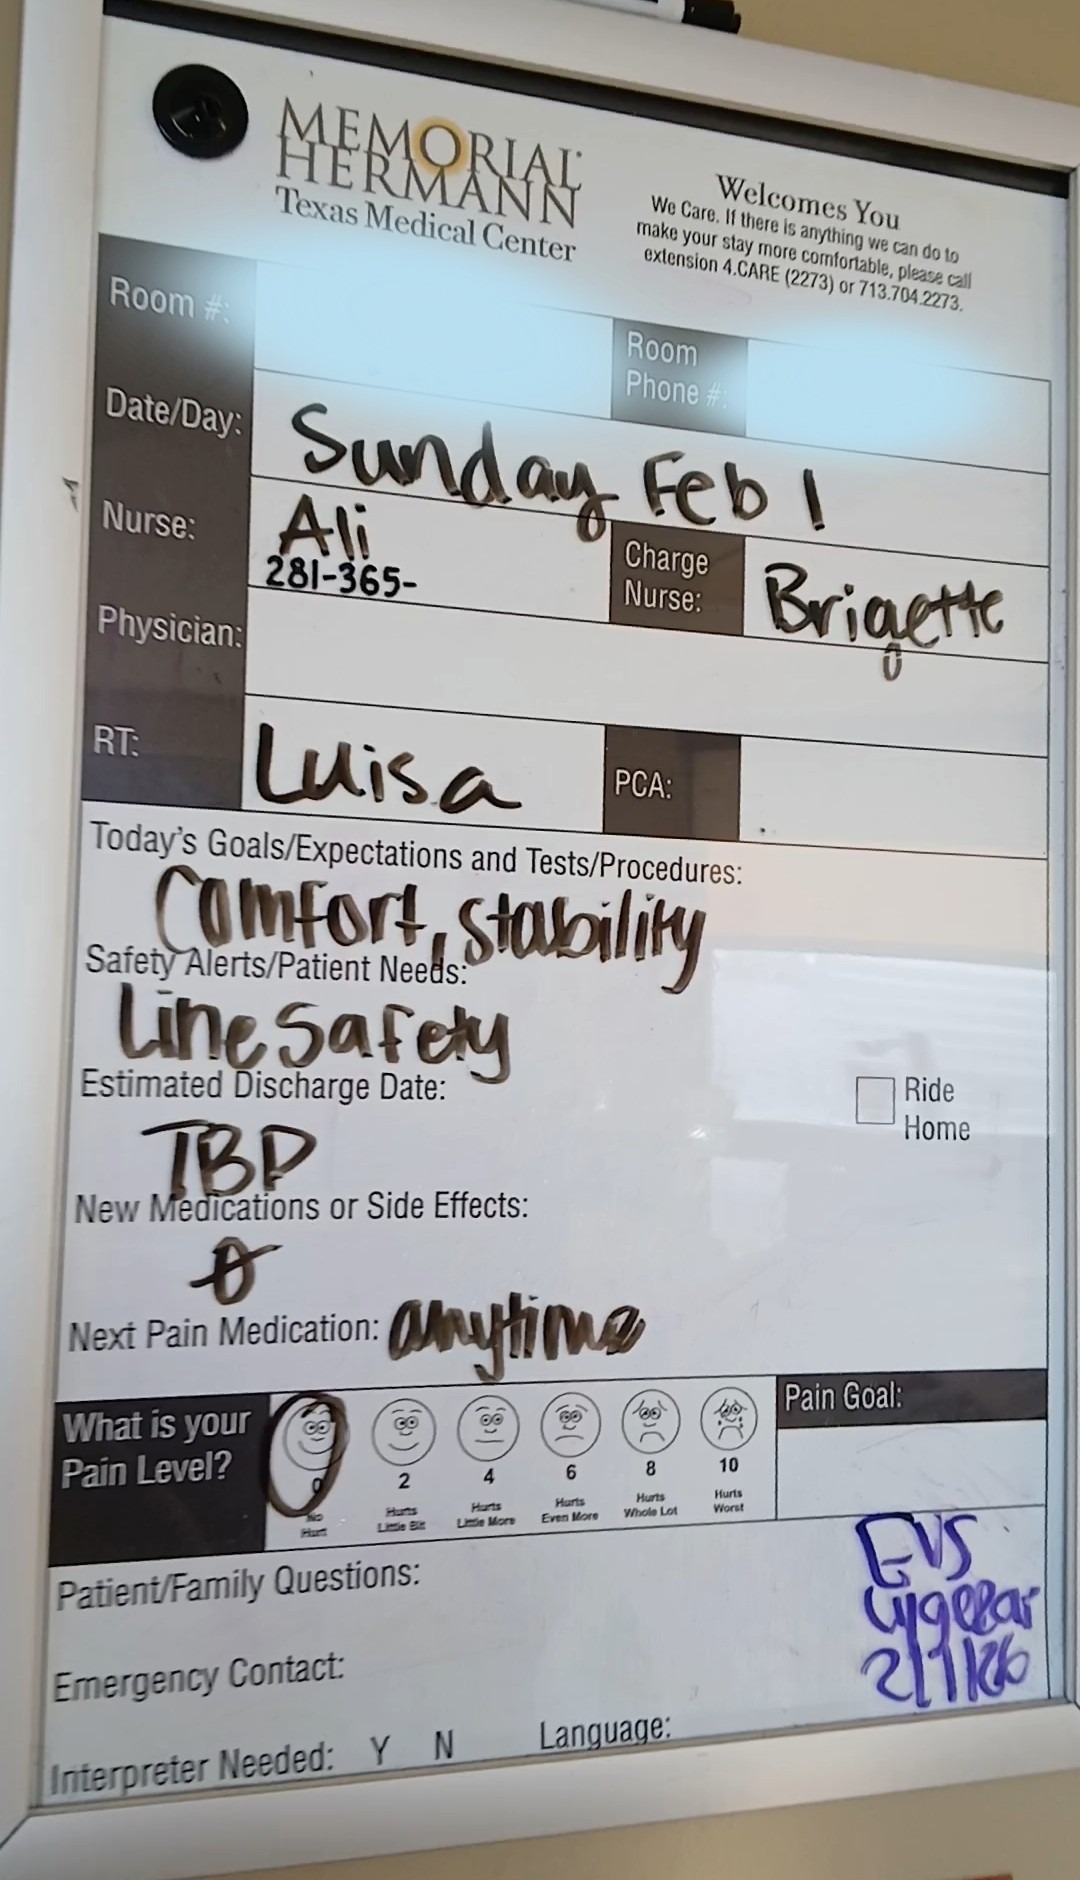 MEMORIAL
HERMANN
Texas Medical Center
Welcomes You
We Care. If there is anything we can do to
make your stay more comfortable, please call
extension 4.CARE (2273) or 713.704.2273.
Room #:
Room
Phone #:
Date/Day: Sunday Feb 1
Nurse: Ali
281-365-
Charge
Nurse: Brigette
Physician:
RT: Luisa
PCA:
Today's Goals/Expectations and Tests/Procedures:
Comfort, stability
Safety Alerts/Patient Needs:
Line Safety
Estimated Discharge Date:
Ride
Home
TBD
New Medications or Side Effects:
Next Pain Medication: anytime
What is your
Pain Level?
0 2 4 6 8 10
No
Hurt
Hurts
Little Bit
Hurts
Little More
Hurts
Even More
Hurts
Whole Lot
Hurts
Worst
Pain Goal:
EVS
2/1/26
Patient/Family Questions:
Emergency Contact:
Interpreter Needed: Y N Language: